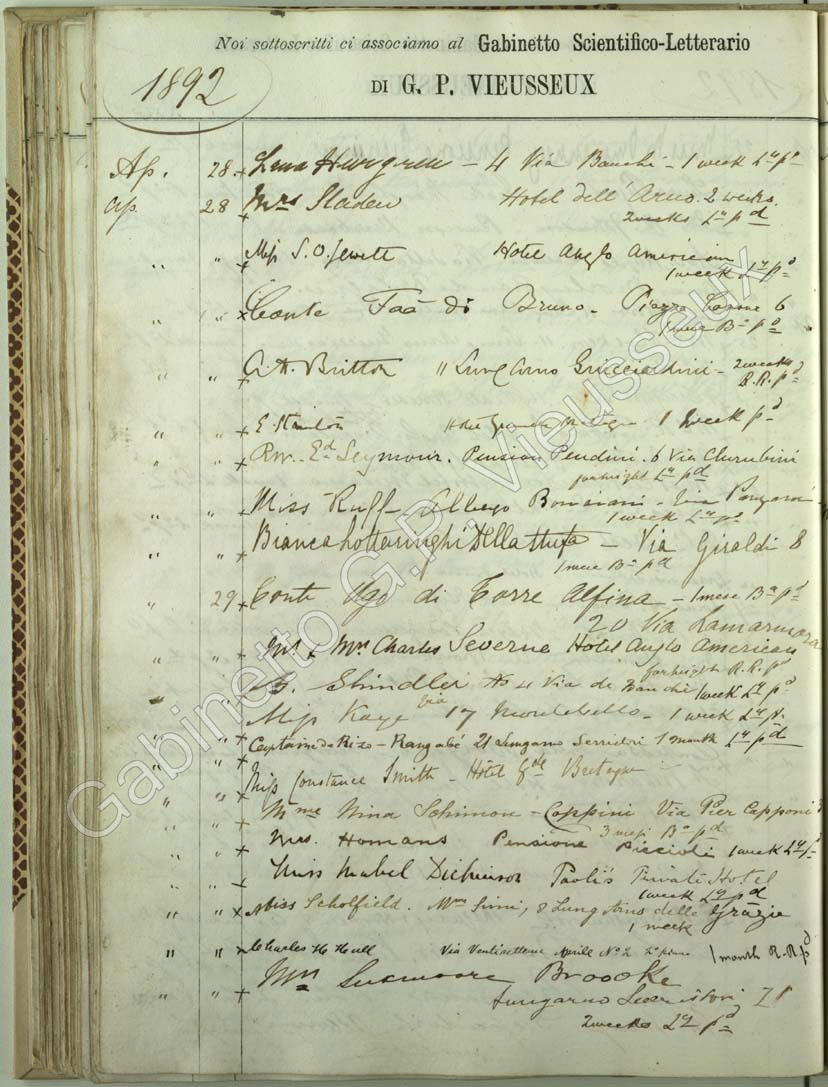 Noi sottoscritti ci associamo al Gabinetto Scientifico-Letterario
1892
DI G. P. VIEUSSEUX
Ap. 28 x Lena - 4 Via Banchi - 1 week Lre pd
ap. 28 x Mrs Sladen Hotel dell' Arno. 2 weeks.
2 weeks Lre pd
" " x Miss S. O. Jewett Hotel Anglo American
1 week Lre pd
" " x Conte Faà di Bruno - Piazza Cavour 6
1 mese Ba pd
" " x A. H. Britton " Lung'arno Guicciardini - 2 weeks
R.R. pd
" " x E. Hotel Grande Bretagne 1 week pd
" " x Rev. Ed Seymour. Pension Pendini. 6 Via Cherubini
fortnight Lre pd
" " x Miss Ruff Albergo Bonciani - Via Panzani
1 week Lre pd
" " x Bianca Lottaringhi Della Stufa - Via Giraldi 8
1 mese Ba pd
" 29 x Conte Ugo di Torre Alfina - 1 mese Ba pd
20 Via Lamarmora
" " x Mr. & Mrs Charles Severne Hotel Anglo American
fortnight R.R. pd
" " Shindler No 4 Via de Banchi 1 week Lre pd
" " x Miss Kaye 17 via Montebello - 1 week Lre pd.
" " x Captaine de Rizo - Rangabé 21 Lungarno Serristori 1 month Lre pd
" " x Miss Constance Smith - Hôtel Gde Bretagne
" " x Mme Nina Schimon - Coppini Via Pier Capponi
3 mesi Ba pd
" " x Mrs. Homans Pensione Piccioli 1 week Lre pd
" " x Miss Mabel Dickinson Paoli's Private Hotel
1 week Lre pd
" " x Miss Scholfield. Mrs Simi, 8 Lung'Arno delle Grazie
1 week
" " x Charles H. Hull Via Ventisettenne Aprile No 2 2o piano 1 month R.R. pd
" " x Mrs Broocke
Lungarno Serristori
2 weeks Lre pd
Gabinetto G.P. Vieusseux